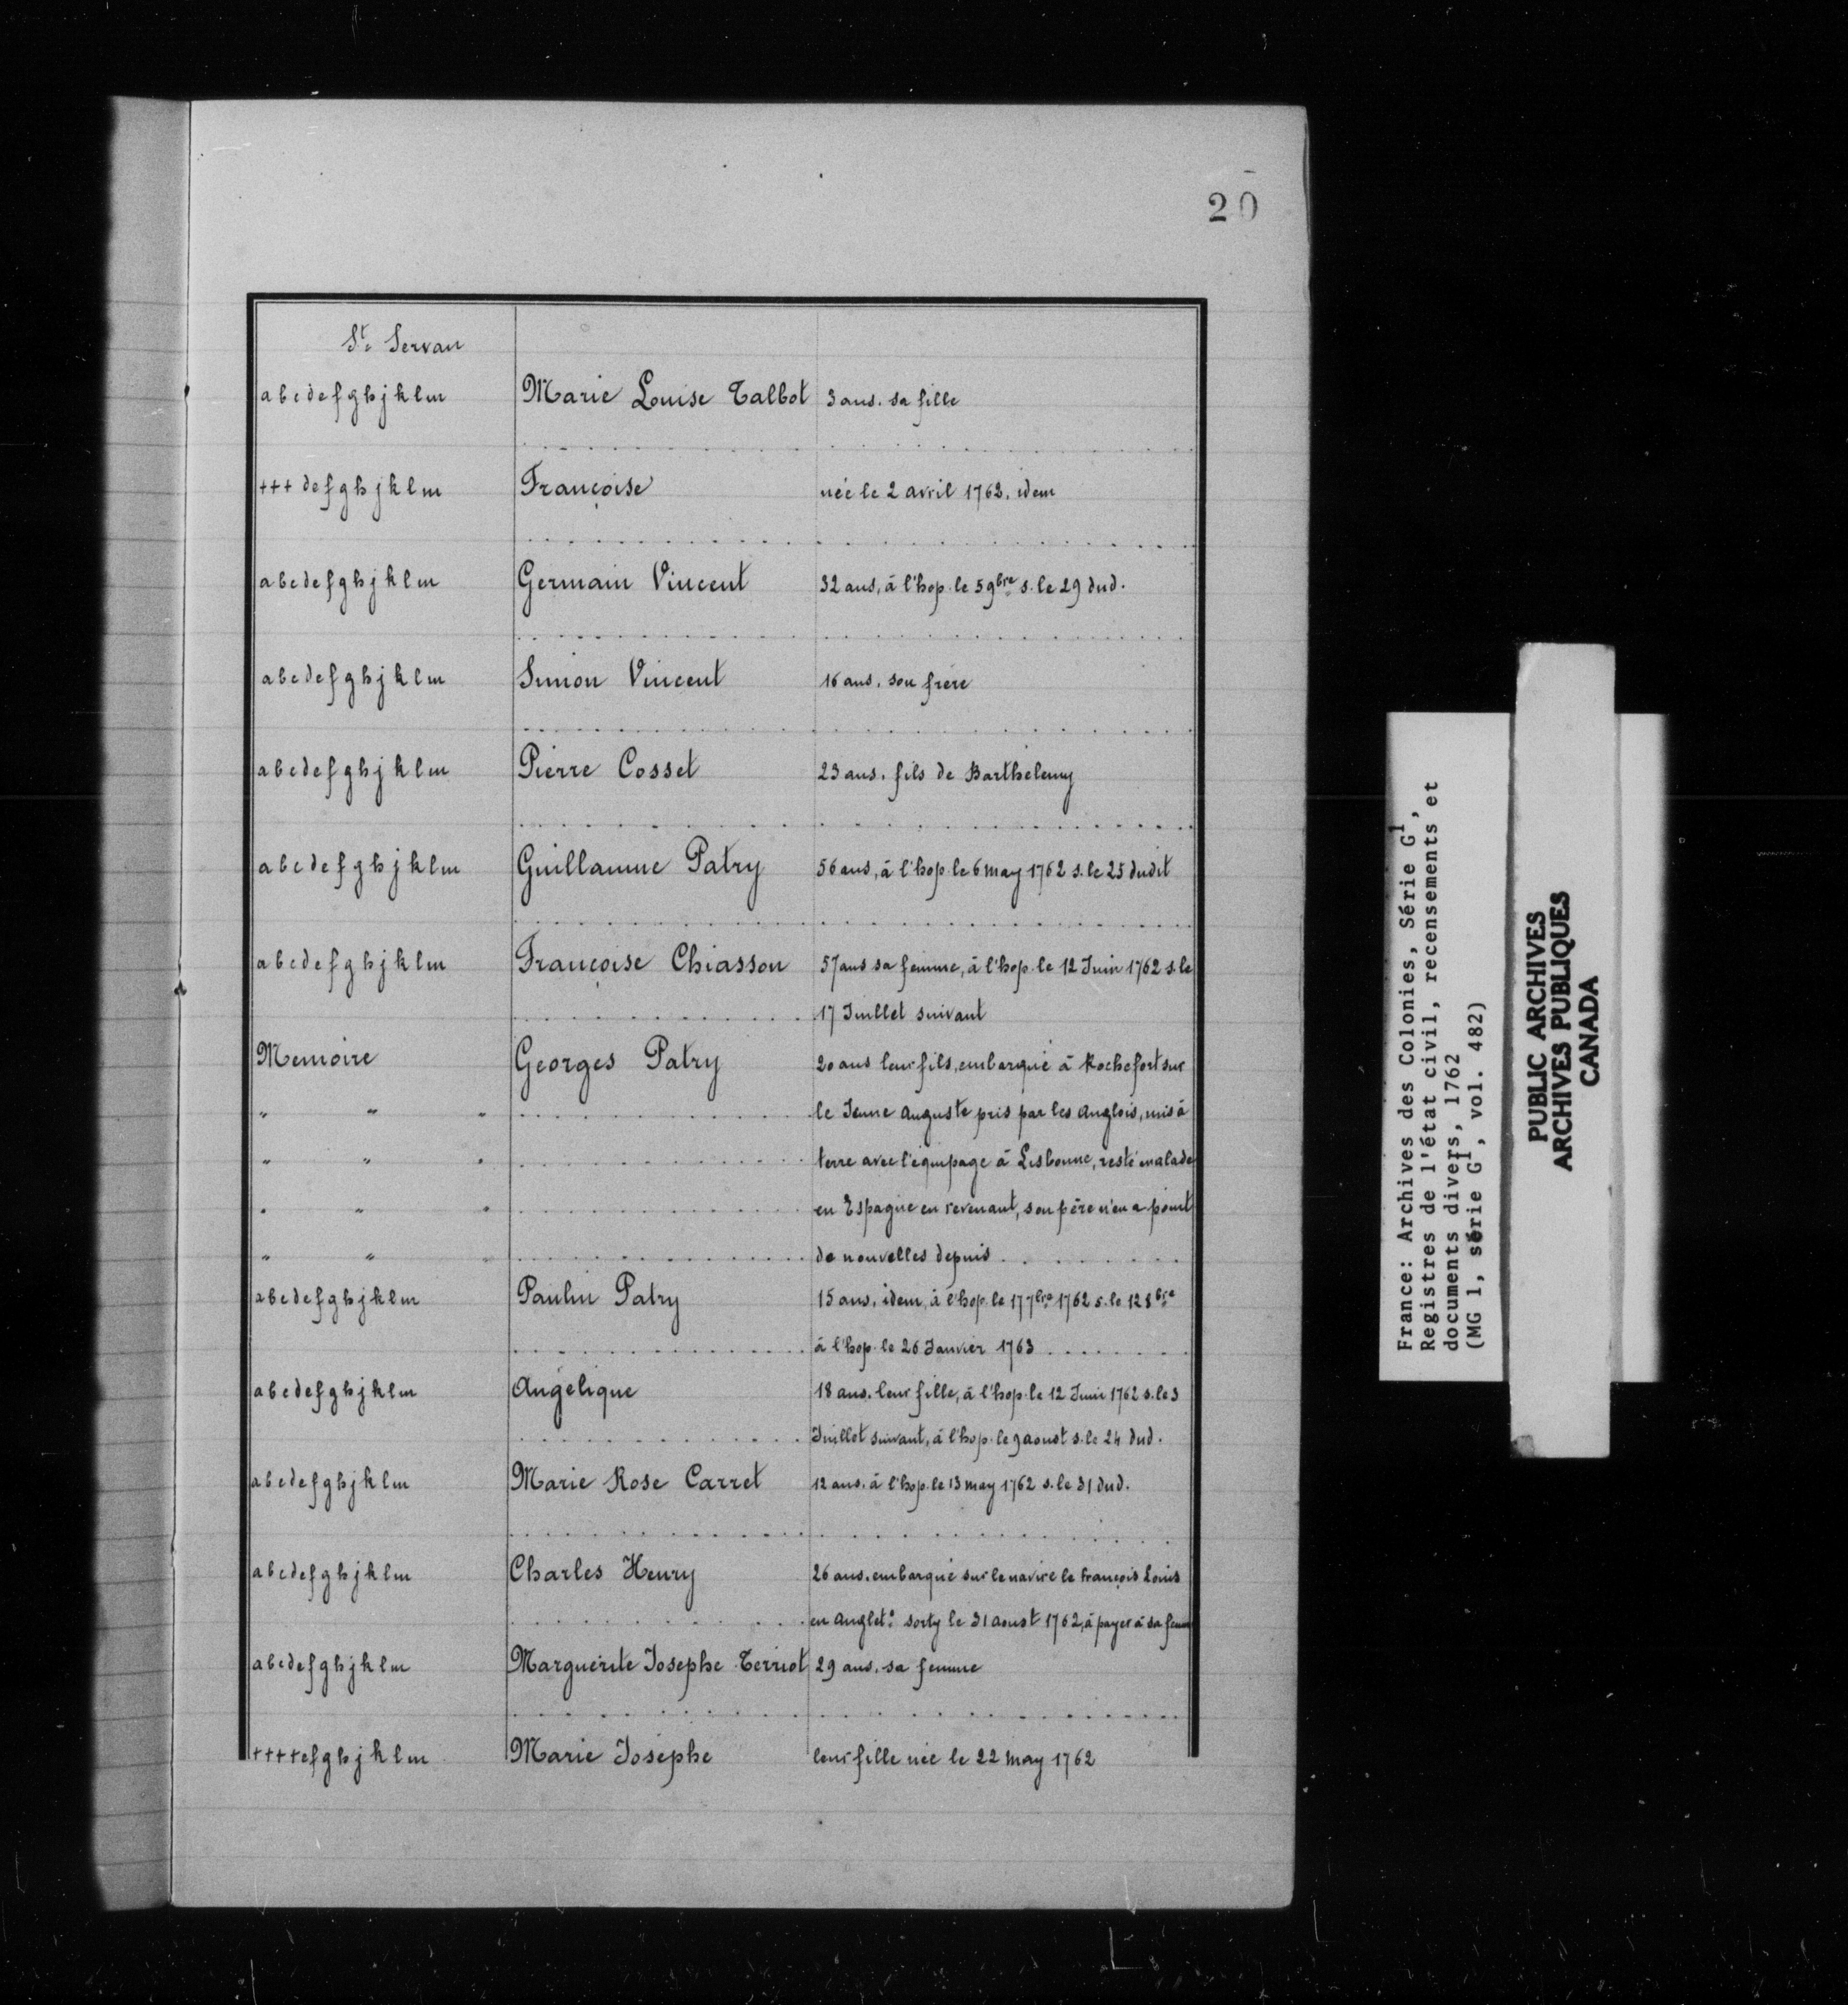 20
St. Servan
abcdefghjklm Marie Louise Talbot 3 ans. sa fille
+++defghjklm Françoise née le 2 avril 1762. idem
abcdefghjklm Germain Vincent 32 ans, à l'hop. le 5 9bre s. le 29 dud.
abcdefghjklm Simon Vincent 16 ans. son frère
abcdefghjklm Pierre Cosset 23 ans. fils de Barthelemy
abcdefghjklm Guillaume Patry 56 ans, à l'hop. le 6 may 1762 s. le 25 dudit
abcdefghjklm Françoise Chiasson 57 ans sa femme, à l'hop. le 12 Juin 1762 s. le
17 Juillet suivant
Memoire Georges Patry 20 ans leur fils, embarqué à Rochefort sur
" " " le Jeune Auguste pris par les Anglois, mis à
" " " terre avec l'équipage à Lisbonne, resté malade
" " " en Espagne en revenant, son père n'en a point
" " " de nouvelles depuis
abcdefghjklm Paulin Patry 15 ans. idem, à l'hop. le 17 7bre 1762 s. le 12 8bre
à l'hop. le 26 Janvier 1763
abcdefghjklm Angélique 18 ans. leur fille, à l'hop. le 12 Juin 1762 s. le 3
Juillet suivant, à l'hop. le 9 aoust s. le 24 dud.
abcdefghjklm Marie Rose Carret 12 ans. à l'hop. le 13 may 1762 s. le 31 dud.
abcdefghjklm Charles Henry 26 ans. embarqué sur le navire le François Louis
en Anglete. sorty le 31 aoust 1762, à payer à sa femme
abcdefghjklm Marguerite Josephe Terriot 29 ans. sa femme
++++efghjklm Marie Josephe leur fille née le 22 may 1762
France: Archives des Colonies, Série G1,
Registres de l'état civil, recensements et
documents divers, 1762
(MG 1, série G1, vol. 482)
PUBLIC ARCHIVES
ARCHIVES PUBLIQUES
CANADA